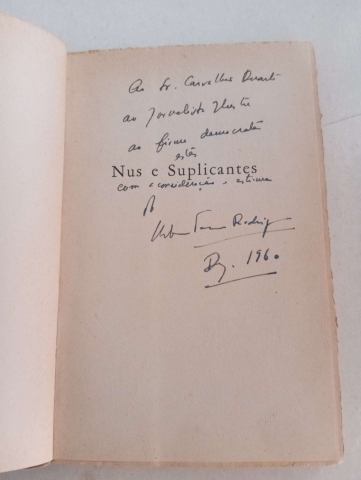 Ao Sr. Carvalhão Duarte
ao jornalista ilustre
ao firme democrata
estes
Nus e Suplicantes
com a consideração e estima
do
Urbano Tavares Rodrigues
Dez. 1960